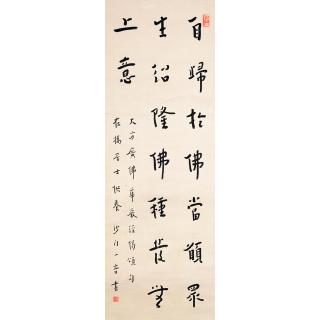 自歸於佛當願眾
生紹隆佛種發無
上意
大方廣佛華嚴經偈頌句
居士供養沙門一音書